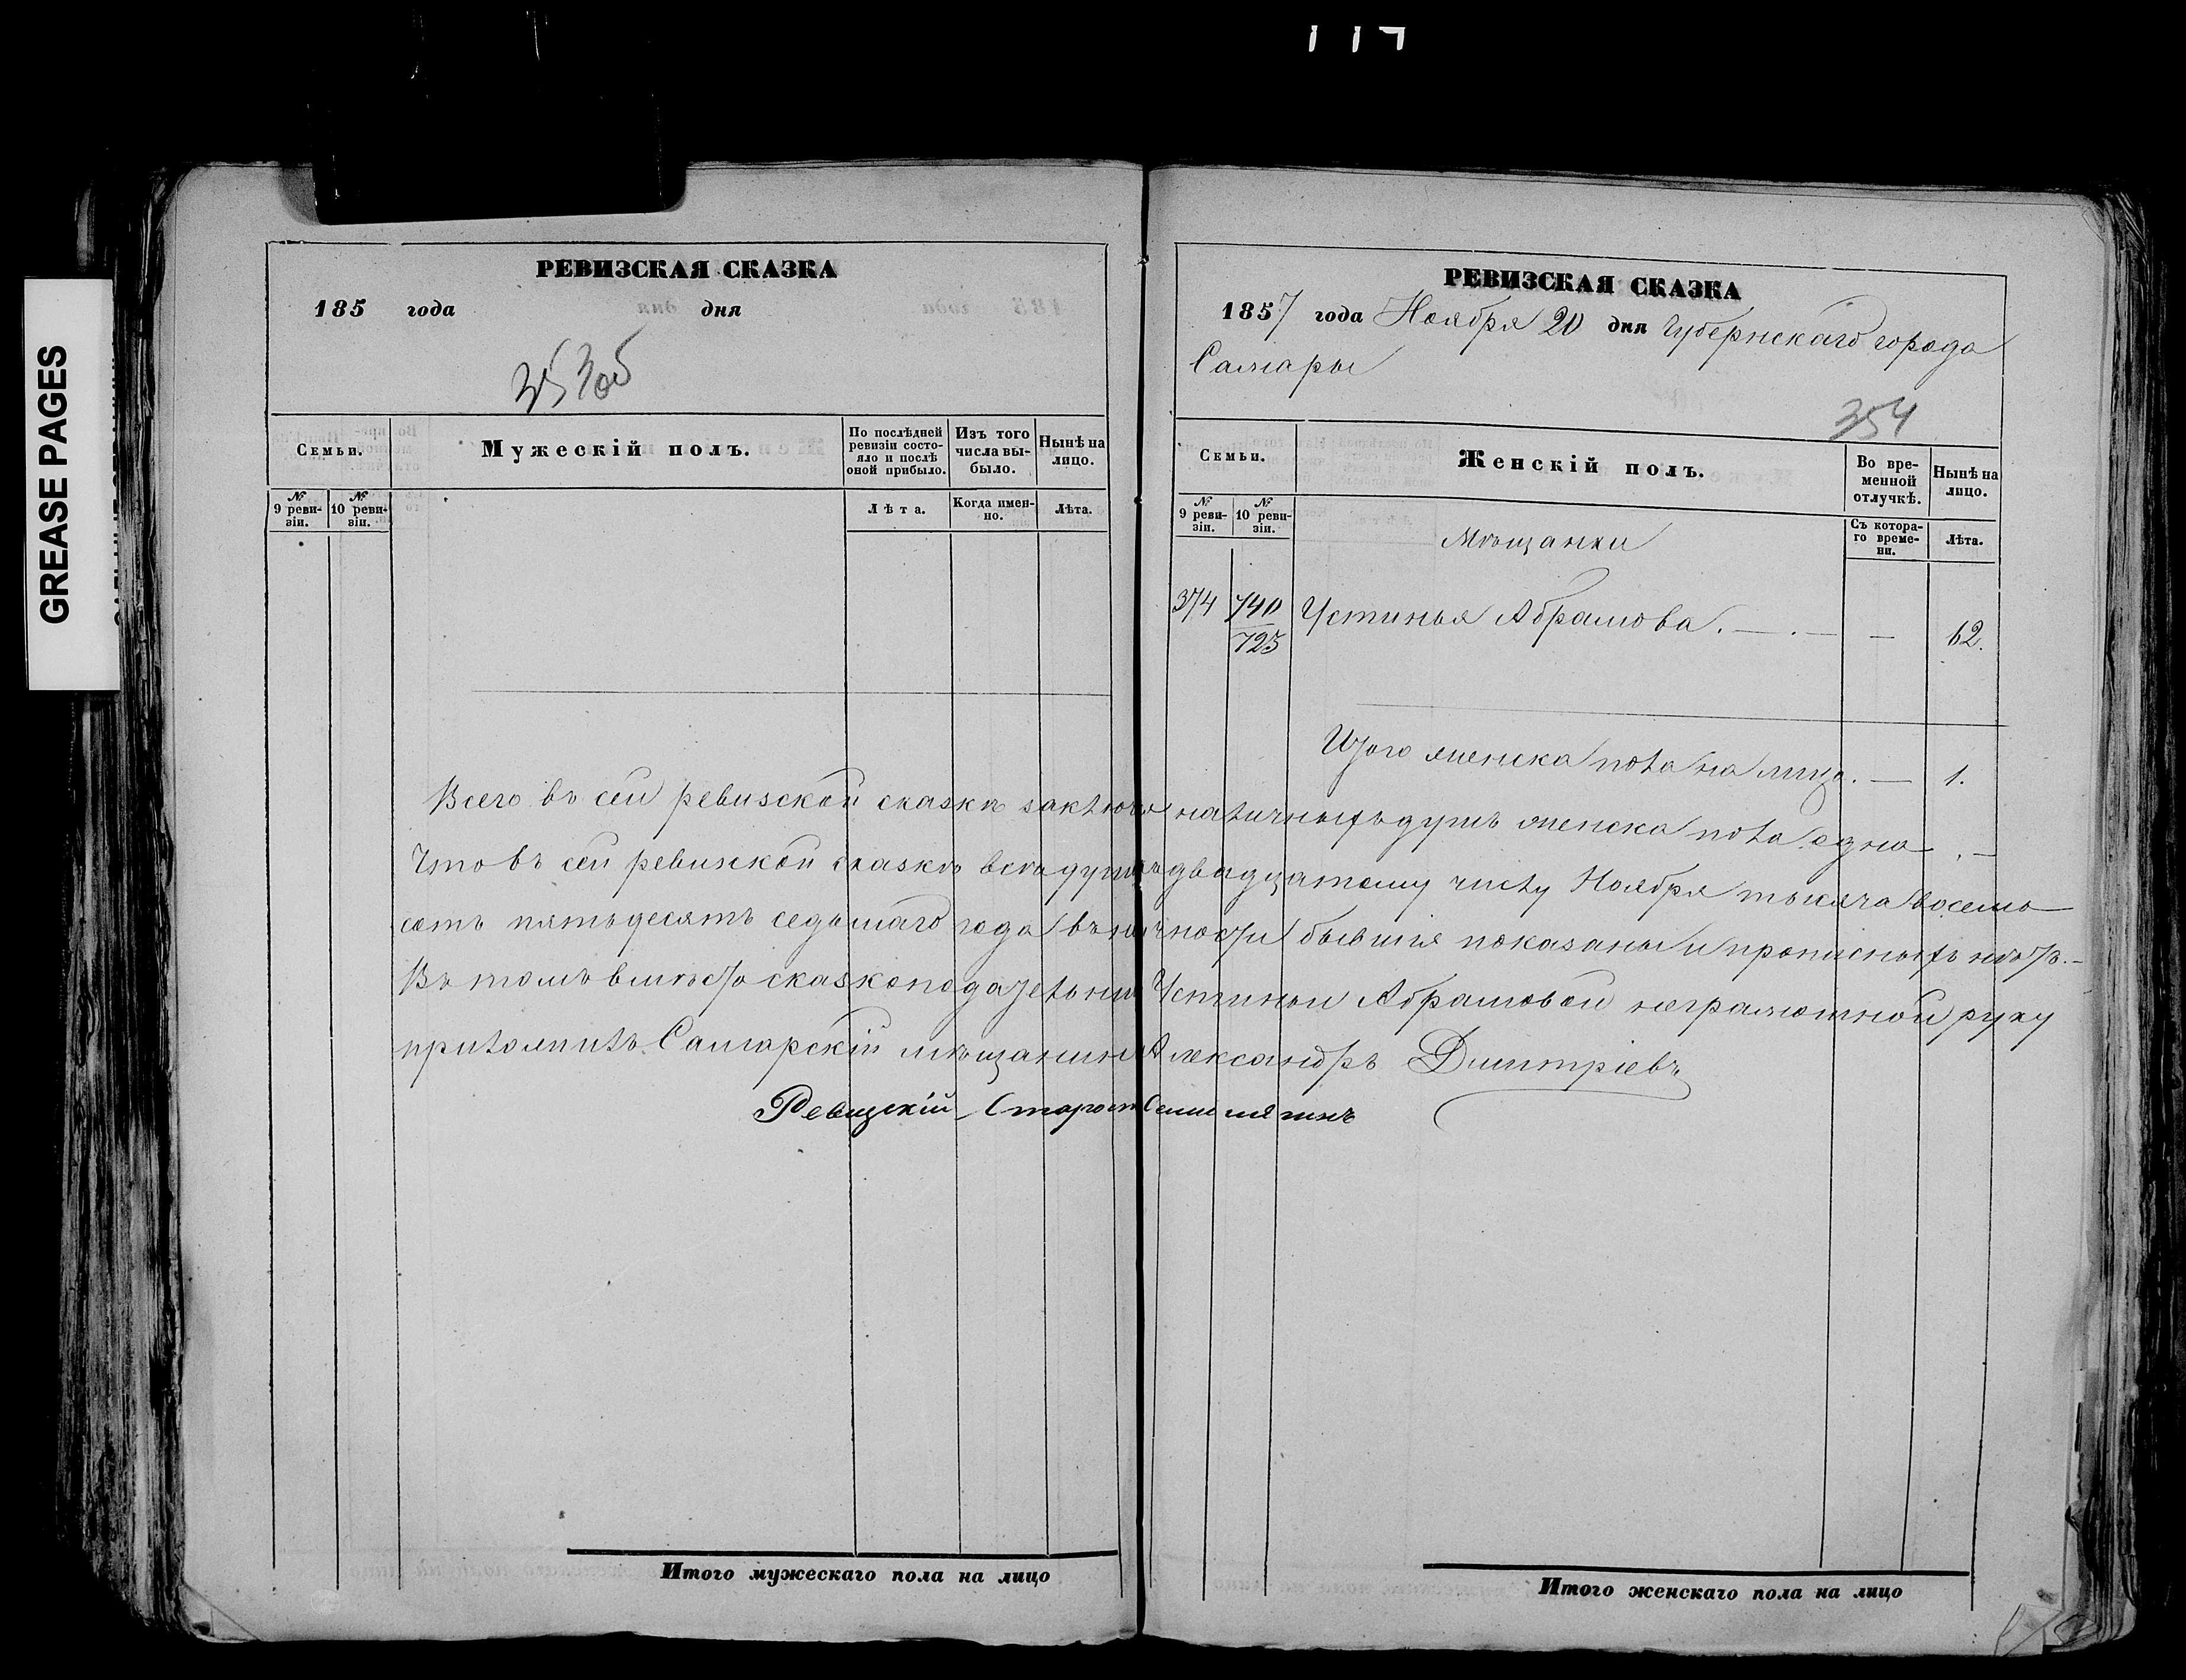 117
GREASE PAGES
РЕВИЗСКАЯ СКАЗКА
185 года дня
353об
Семьи.
Мужескій полъ.
По послѣдней ревизіи состояло и послѣ оной прибыло.
Изъ того числа выбыло.
Нынѣ на лицо.
№ 9 ревизіи.
№ 10 ревизіи.
Лѣта.
Когда именно.
Лѣта.
РЕВИЗСКАЯ СКАЗКА
1857 года Ноября 20 дня Губернскаго города
Самары
354
Семьи.
Женскій полъ.
Во временной отлучкѣ.
Нынѣ на лицо.
№ 9 ревизіи.
№ 10 ревизіи.
Съ котораго времени.
Лѣта.
Мѣщанки
374 740 Устинья Абрамова. — . — — 62.
723
Итого женска пола на лицо. — 1.
Всего въ сей ревизской сказкѣ заключено наличныхъ душъ женска пола одна . —
Что въ сей ревизской сказкѣ всѣ души къ двадцатому числу Ноября тысяча восемь
сотъ пятьдесятъ седьмаго года въ наличности бывшія показаны и прописныхъ нѣтъ. —
Въ томъ вмѣсто сказкоподательницы Устиньи Абрамовой неграмотной руку
приложилъ Самарскій мѣщанинъ Александръ Дмитріевъ
Ревизскій Староста
Итого мужескаго пола на лицо
Итого женскаго пола на лицо